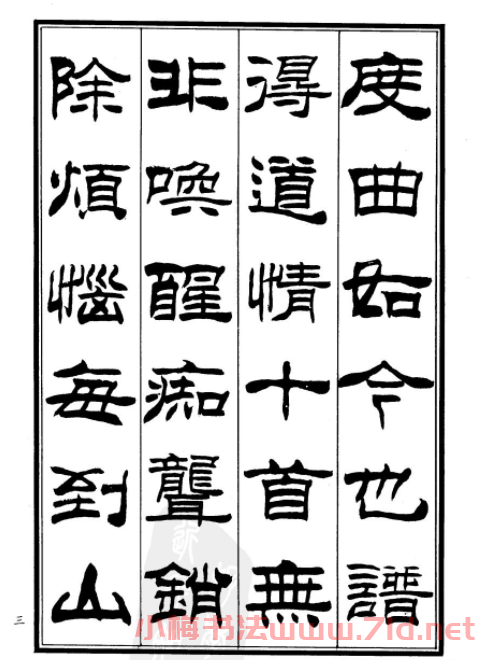 度曲如今也譜
得道情十首無
非喚醒痴聾銷
除煩惱每到山
三
小梅书法www.71d.net